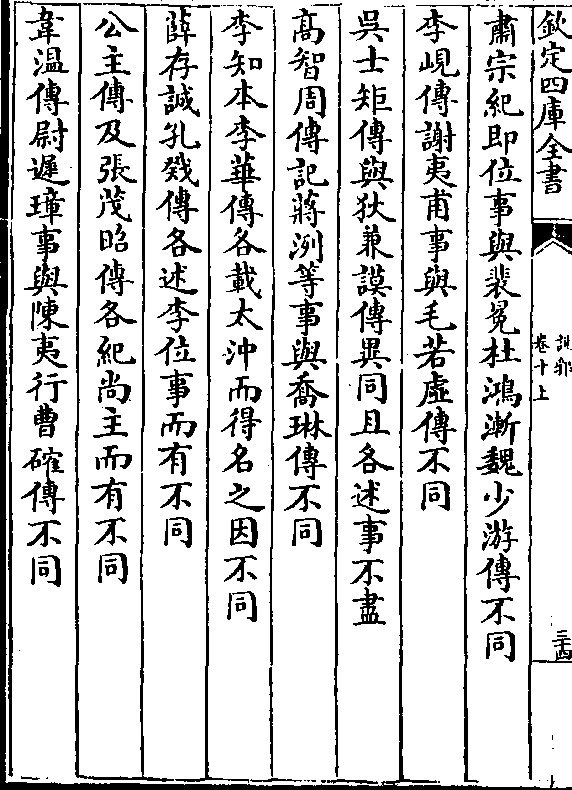 欽定四庫全書
說郛
卷十上
三十四
肅宗紀即位事與裴冕杜鴻漸魏少游傳不同
李峴傳謝夷甫事與毛若虛傳不同
吳士矩傳與狄兼謨傳異同且各述事不盡
高智周傳記蔣洌等事與喬琳傳不同
李知本李華傳各載太沖而得名之因不同
薛存誠孔戣傳各述李位事而有不同
公主傳及張茂昭傳各紀尚主而有不同
韋温傳尉遲璋事與陳夷行曹確傳不同